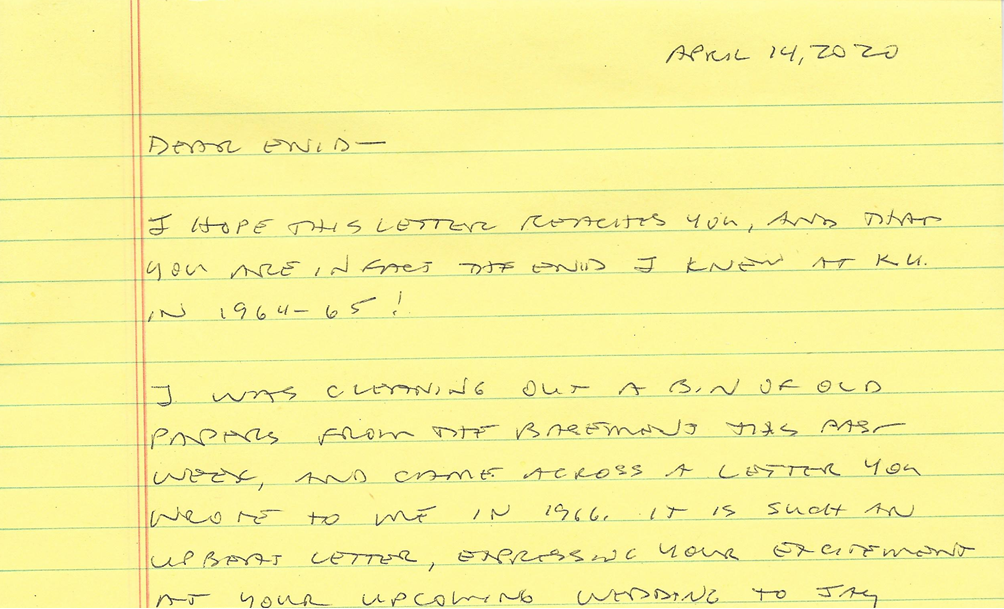 APRIL 14, 2020
DEAR ENID—
I HOPE THIS LETTER REACHES YOU, AND THAT
YOU ARE IN FACT THE ENID I KNEW AT K.U.
IN 1964-65!
I WAS CLEANING OUT A BIN OF OLD
PAPERS FROM THE BASEMENT THIS PAST
WEEK, AND CAME ACROSS A LETTER YOU
WROTE TO ME IN 1966. IT IS SUCH AN
UPBEAT LETTER, EXPRESSING YOUR EXCITEMENT
AT YOUR UPCOMING WEDDING TO JAY